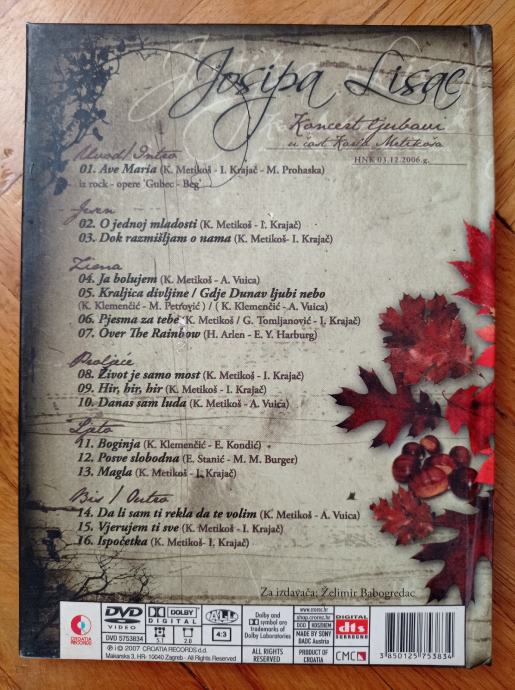 Josipa Lisac
Koncert ljubavi
u čast Karla Metikoša
HNK 03.12.2006.g.
Uvod/Intro
01. Ave Maria (K. Metikoš - I. Krajač - M. Prohaska)
iz rock - opere 'Gubec - Beg'
Jesen
02. O jednoj mladosti (K. Metikoš - I. Krajač)
03. Dok razmišljam o nama (K. Metikoš- I. Krajač)
Zima
04. Ja bolujem (K. Metikoš - A. Vuica)
05. Kraljica divljine / Gdje Dunav ljubi nebo
(K. Klemenčić - M. Petrović ) / ( K. Klemenčić - A. Vuica)
06. Pjesma za tebe (K. Metikoš / G. Tomljanović - I. Krajač)
07. Over The Rainbow (H. Arlen - E. Y. Harburg)
Proljeće
08. Život je samo most (K. Metikoš - I. Krajač)
09. Hir, hir, hir (K. Metikoš - I. Krajač)
10. Danas sam luda (K. Metikoš - A. Vuica)
Ljeto
11. Boginja (K. Klemenčić - E. Kondić)
12. Posve slobodna (E. Stanić - M. M. Burger)
13. Magla (K. Metikoš - I. Krajač)
Bis / Outro
14. Da li sam ti rekla da te volim (K. Metikoš - A. Vuica)
15. Vjerujem ti sve (K. Metikoš - I. Krajač)
16. Ispočetka (K. Metikoš- I. Krajač)
Za izdavača: Želimir Babogredac
CROATIA RECORDS
DVD VIDEO
DVD 5753834
DOLBY DIGITAL
5.1 2.0
ALL
4:3
Dolby and
symbol are
trademarks of
Dolby Laboratories
ALL RIGHTS
RESERVED
www.crorec.hr
shop.crorec.hr
MADE BY SONY
DADC Austria
PRODUCT OF
CROATIA
DIGITAL
dts
SURROUND
CMC
3 850125 753834
℗ i © 2007 CROATIA RECORDS d.d.
Makanska 3, HR- 10040 Zagreb - All Rights Reserved